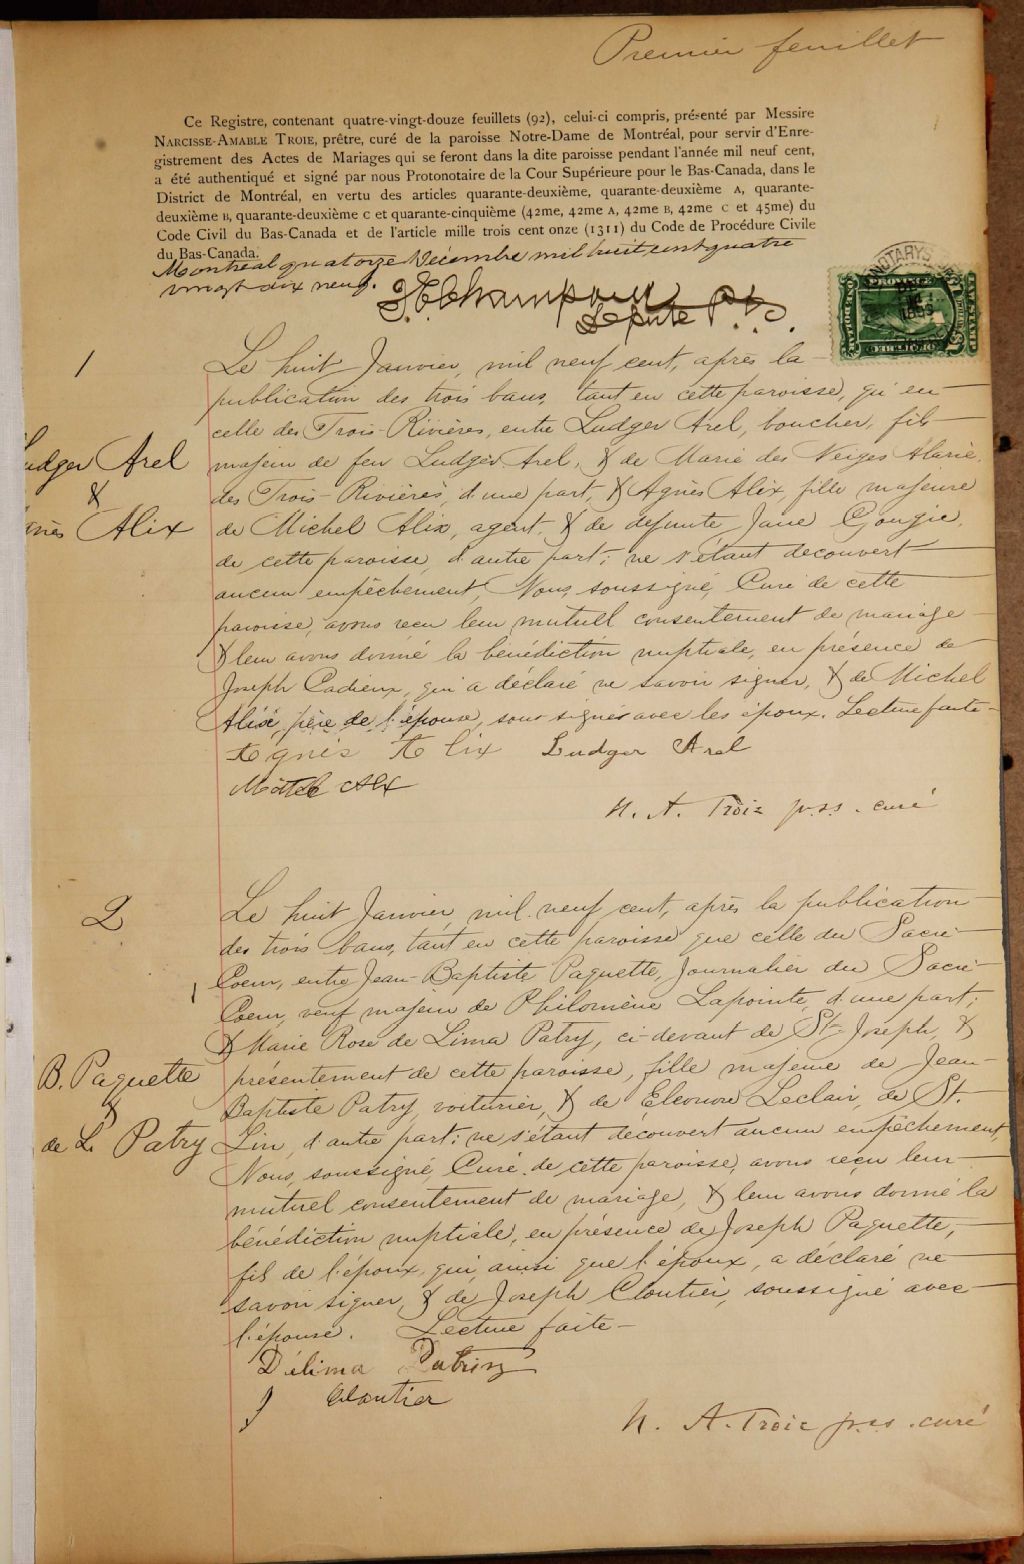 Premier feuillet
Ce Registre, contenant quatre-vingt-douze feuillets (92), celui-ci compris, présenté par Messire
NARCISSE-AMABLE TROIE, prêtre, curé de la paroisse Notre-Dame de Montréal, pour servir d'Enre-
gistrement des Actes de Mariages qui se feront dans la dite paroisse pendant l'année mil neuf cent,
a été authentiqué et signé par nous Protonotaire de la Cour Supérieure pour le Bas-Canada, dans le
District de Montréal, en vertu des articles quarante-deuxième, quarante-deuxième A, quarante-
deuxième B, quarante-deuxième C et quarante-cinquième (42me, 42me A, 42me B, 42me C et 45me) du
Code Civil du Bas-Canada et de l'article mille trois cent onze (1311) du Code de Procédure Civile
du Bas-Canada.
Montréal quatorze Décembre mil huit cent quatre
vingt dix neuf.
Député P.
1
Ludger Arel
&
Agnès Alix
Le huit Janvier, mil neuf cent, après la
publication des trois bans, tant en cette paroisse, qu'en
celle des Trois-Rivières, entre Ludger Arel, boucher, fils
majeur de feu Ludger Arel, & de Marie des Neiges Alarie,
des Trois-Rivières, d'une part, & Agnès Alix, fille majeure
de Michel Alix, agent, & de défunte Jane Gougie,
de cette paroisse, d'autre part; ne s'étant découvert
aucun empêchement, Nous, soussigné, Curé de cette
paroisse, avons reçu leur mutuel consentement de mariage
& leur avons donné la bénédiction nuptiale, en présence de
Joseph Cadieux, qui a déclaré ne savoir signer, & de Michel
Alix, père de l'épouse, soussignés avec les époux. Lecture faite-
Agnès Alix Ludger Arel
Alix
N. A. Troie p.s.s. curé
2
B. Paquette
&
de L. Patry
Le huit Janvier, mil neuf cent, après la publication
des trois bans, tant en cette paroisse que celle du Sacré-
Coeur, entre Jean-Baptiste Paquette, Journalier du Sacré-
Coeur, veuf majeur de Philomène Lapointe, d'une part;
& Marie Rose de Lima Patry, ci-devant de St-Joseph, &
présentement de cette paroisse, fille majeure de Jean-
Baptiste Patry, voiturier, & de Eléonore Leclair, de St.
Lin, d'autre part; ne s'étant découvert aucun empêchement,
Nous, soussigné, Curé de cette paroisse, avons reçu leur
mutuel consentement de mariage, & leur avons donné la
bénédiction nuptiale, en présence de Joseph Paquette,
fils de l'époux, qui ainsi que l'époux, a déclaré ne
savoir signer, & de Joseph Cloutier, soussigné avec
l'épouse. Lecture faite-
Délima
J Cloutier
N. A. Troie p.s.s. curé